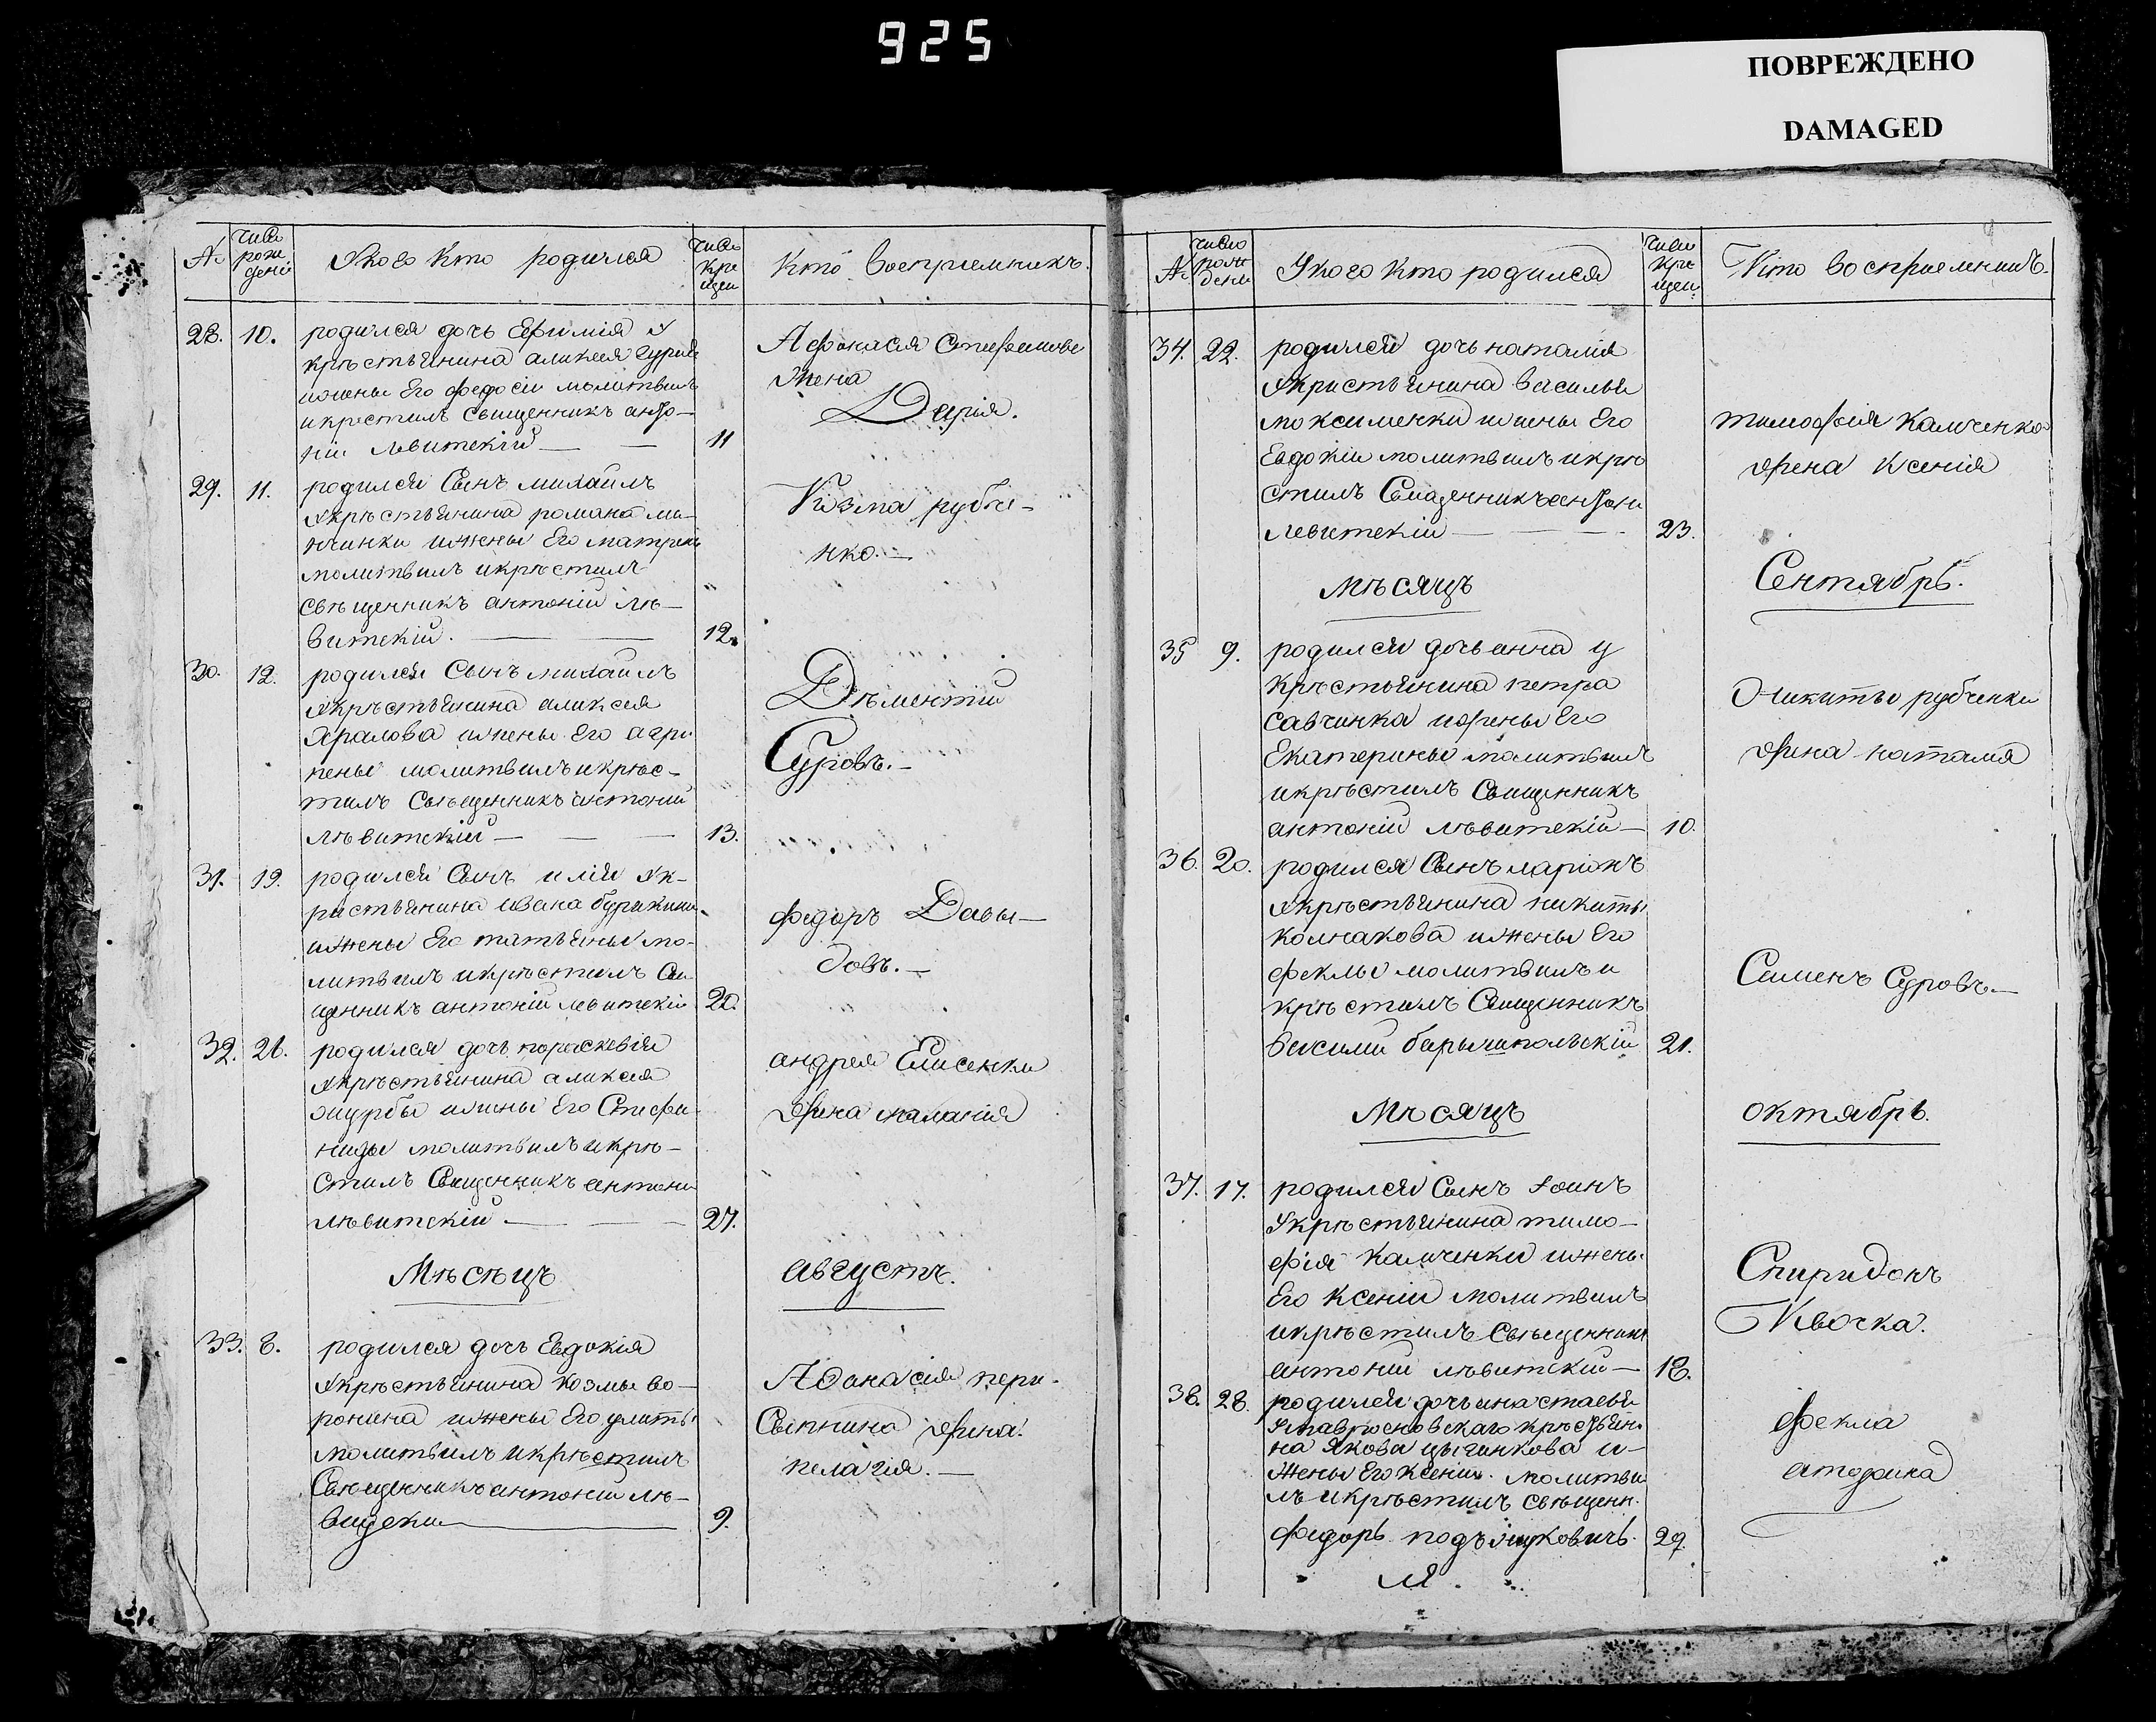 925
ПОВРЕЖДЕНО
DAMAGED
№
число рожде дені
Укого Кто родился
число кре щен
Кто Восприемникъ.
28. 10. родился дочь Ефимія у
крѣстьянина аликсея
ижены Его федосіи молитвилъ
икрестилъ Священникъ анто-
ніи Лѣвитскій 11
Афонасія Стефанова
Жена
Дарія.
29. 11. родился Сынъ михаилъ
Укрѣстьянина романа ми-
нчинки ижены Его матрены
молитвилъ икрѣстилъ
Свѣщенникъ антоній лѣ-
витскій. 12.
Козма рубче-
нко.
30. 12. родился Сынъ михаилъ
Укрѣстьянина аликсея
Хралова ижены Его агри
пены молитвилъ икрѣс-
тилъ Свѣщенникъ антоній
лѣвитскій 13.
Дѣментій
Суровъ.
31. 19. родился Сынъ илія Ук-
ристьянина ивана
ижены Его татьяны мо-
литвилъ икрѣстилъ Сви
щенникъ антоній левитскій 20.
федоръ Давы-
довъ.
32. 26. родился дочь параскевія
Укрѣстьянина аликсея
журбы ижены Его Стефа-
ниды молитвилъ икрѣ-
стилъ Священникъ антони
лѣвитскій 27.
андрея Елисенки
Жена маланія
Мѣсѣцъ
августъ.
33. 8. родился дочь Евдокія
Укрѣстьянина козмы во-
ронина ижены Его улиты
молитвилъ икрѣстилъ
Свѣщенникъ антоній лѣ-
вицски 9.
Афанасія пери-
Сыпкина Жена
пелагія.
№
число рож дені
Укого кто родился
число кре щен
Кто восприемникъ
34. 22. родился дочь наталія
Укристьянина василья
моксименки ижены Его
Евдокіи молитвилъ икрѣ
стилъ Священникъ антони
левитскій 23.
тимофія Калченко
Жена Ксенія
мѣсяцъ
Сентябрь.
35 9. родился дочь анна у
крѣстьянина петра
савчинка ижены Его
Екатерины молитвилъ
икрѣстилъ Священникъ
антоній лѣвитскій 10.
Никиты рубченки
Жена наталия
36. 20. родился Сынъ ларіонъ
Укрѣстьянина никиты
колпакова ижены Его
феклы молитвилъ и
крѣстилъ Священникъ
василій барышпольскій 21.
Семенъ Суровъ.
Мѣсяцъ
октябрь.
37. 17. родился Сынъ Іоинъ
Укрѣстьянина тимо-
фія Калченки ижены
Его Ксеніи молитвилъ
икрѣстилъ Свѣщенникъ
антоній лѣвитскій 18.
Спиридонъ
Квочка.
38. 28. родился дочь инастасья
крѣстьяни-
на Якова цыганкова и-
жены Его ксении. молитви
лъ икрѣстилъ Свѣщенн.
федоръ 29.
фекла